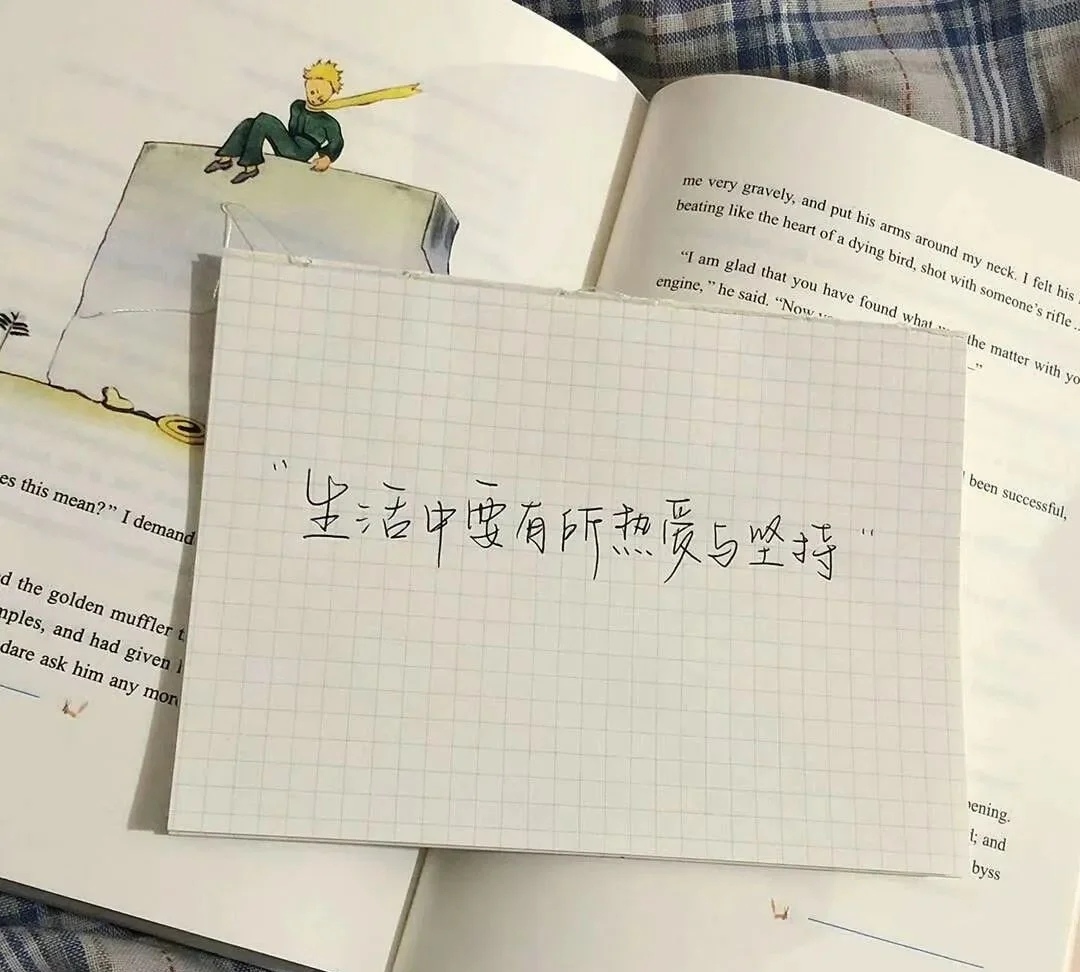 es this mean?” I demand
d the golden muffler t
mples, and had given
dare ask him any mor
me very gravely, and put his arms around my neck. I felt his
beating like the heart of a dying bird, shot with someone’s rifle...
“I am glad that you have found what the matter with yo
engine,” he said. “Now
–”
been successful,
pening.
d; and
byss
"生活中要有所热爱与坚持"